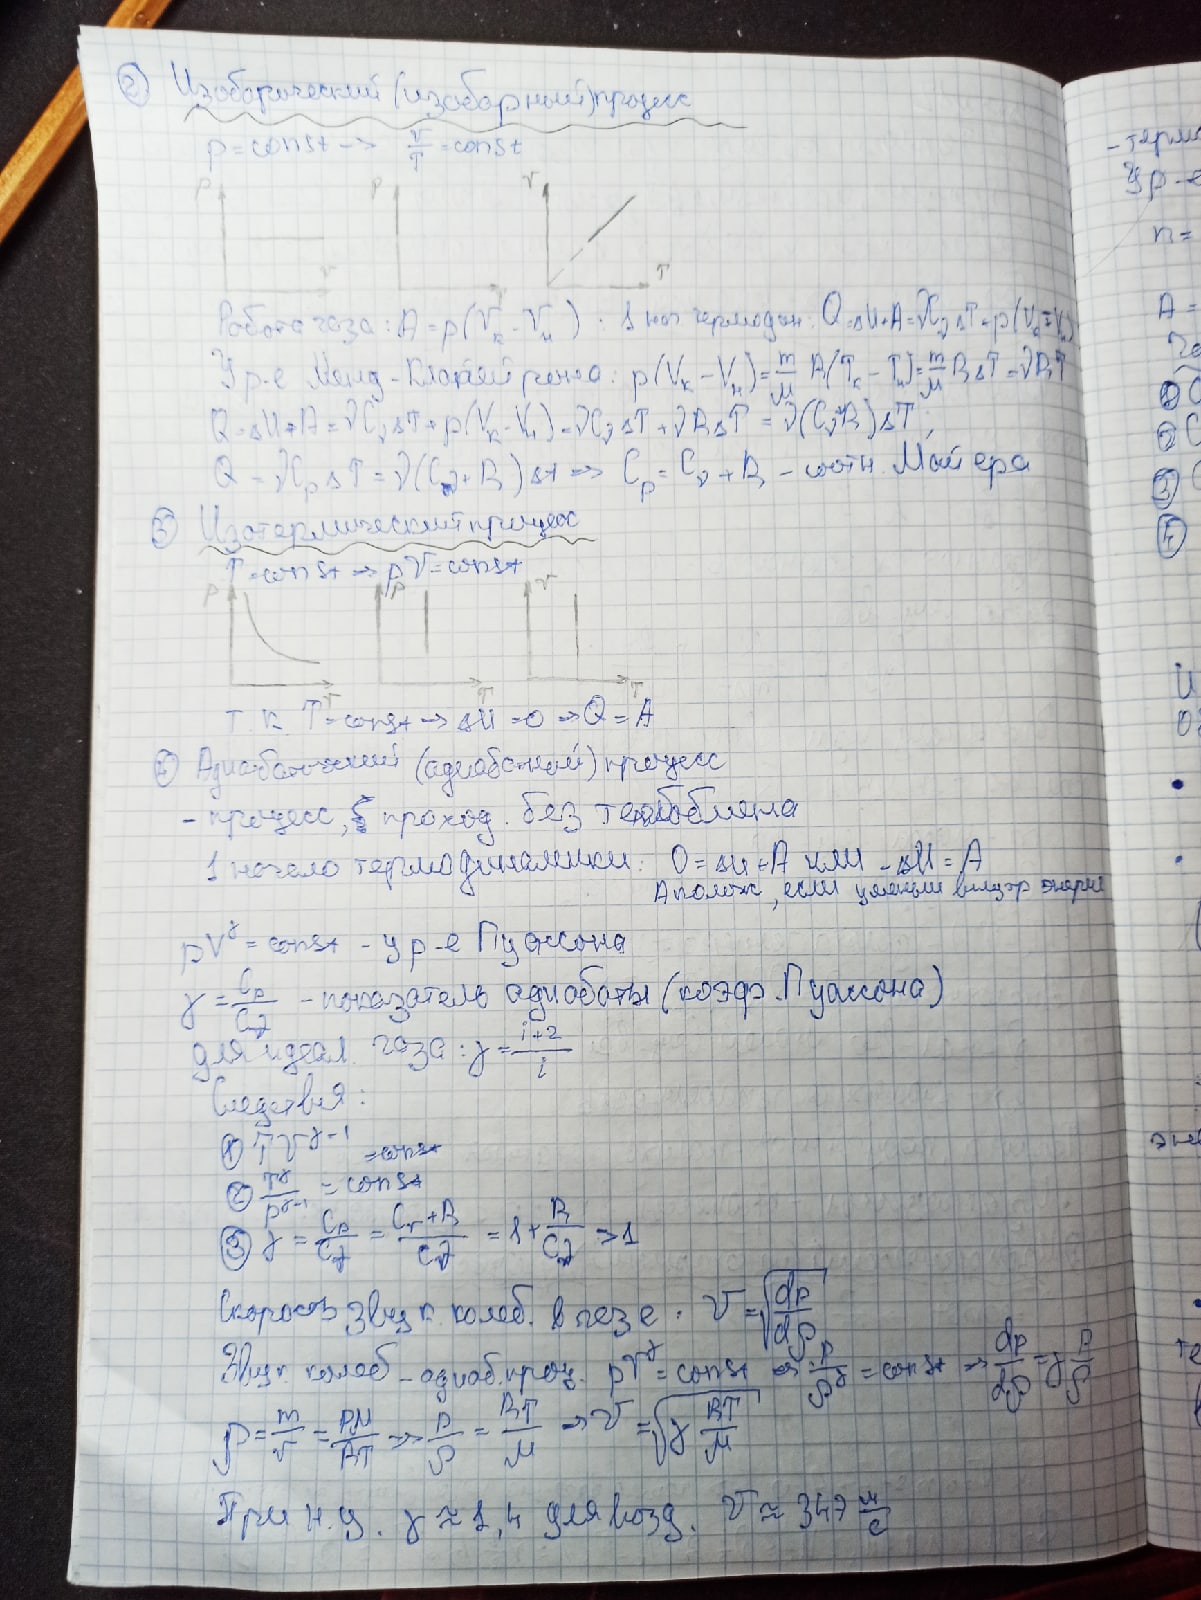 ② Изобарический (изобарный) процесс
p = const → V/T = const
P P V
V T
Работа газа: A = p(Vк - Vн). 1 нач термодин: Q = ΔU + A = νCvΔT + p(Vк - Vн)
Ур-е Менд-Клапейрона: p(Vк - Vн) = m/M R(Tк - Tн) = m/M RΔT = νRT
Q = ΔU + A = νCvΔT + p(Vк - Vн) = νCvΔT + νRΔT = ν(Cv+R)ΔT;
Q = νCpΔT = ν(Cv + R)Δt => Cp = Cv + R - соотн. Майера
③ Изотермический процесс
T = const → pV = const
P P V
V T T
т.к. T = const → ΔU = 0 → Q = A
④ Адиабатический (адиабатный) процесс
- процесс, проход. без теплообмена
1 начало термодинамики: 0 = ΔU + A или -ΔU = A
A полож, если внутр энерг
pV^γ = const - ур-е Пуассона
γ = Cp/Cv - показатель адиабаты (коэф. Пуассона)
для идеал. газа: γ = i+2/i
Следствия:
① TV^γ-1 = const
② T^γ/p^γ-1 = const
③ γ = Cp/Cv = Cv+R/Cv = 1 + R/Cv > 1
Скорость звук. колеб. в газе. V = √dp/dρ
Звук. колеб - адиаб. проц. pV^γ = const p/ρ^γ = const → dp/dρ = γ p/ρ
ρ = m/V = pM/RT → p/ρ = RT/M → V = √γ RT/M
При н.у. γ ≈ 1,4 для возд. V ≈ 347 м/с
- термо
Ур-е
n =
A =
①
②
③
④